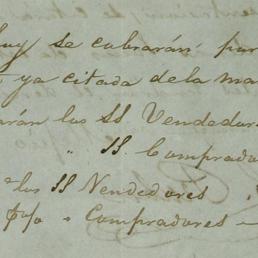 se cobrarán por
ya citada de la ma
arán los SS Vendedor
" SS Comprado
a los SS Vendedores
" Compradores